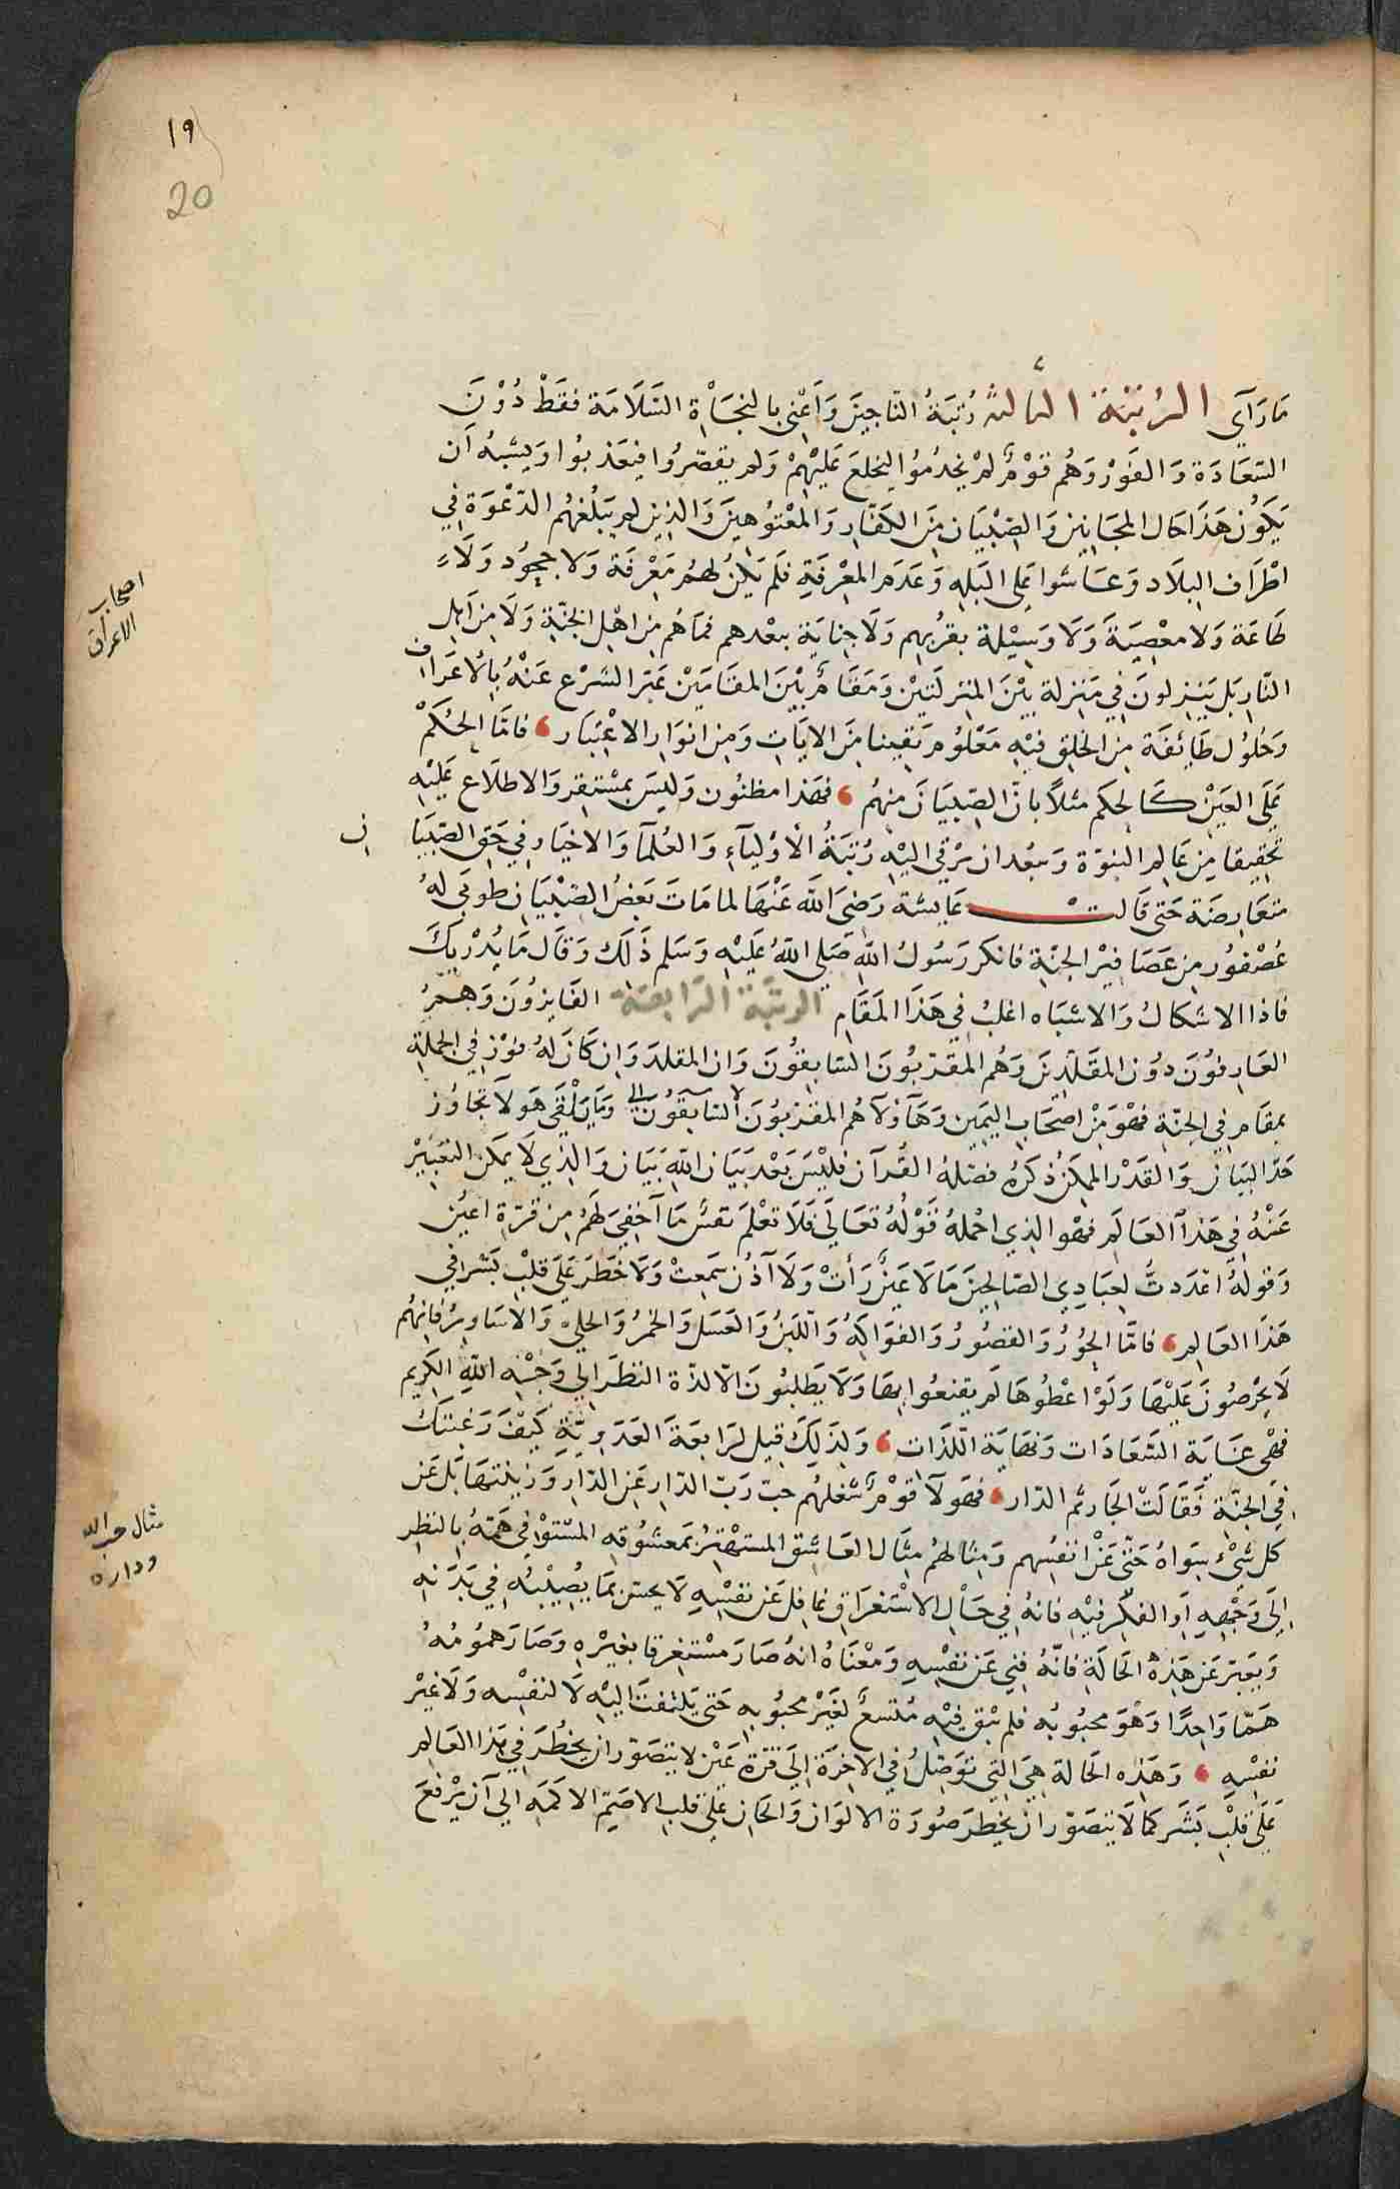 ١٩
20
ما رآى الرتبة الثالثة رتبة الناجين واعني بالنجاة السلامة فقط دون
السعادة والفوز وهم قوم لم يخدموا ليخلع عليهم ولم يقصّروا فيعذبوا ويشبه ان
يكون هذا حال المجانين والصبيان من الكفار والمعتوهين والذين لم يبلغهم الدعوة في
اطراف البلاد وعاشوا على البله وعدم المعرفة فلم يكن لهم معرفة ولا جحود ولا
طاعة ولا معصية ولا وسيلة بقربهم ولا جناية ببعدهم فما هم من اهل الجنة ولا من اهل
النار بل ينزلون في منزلة بين المنزلتين ومقام بين المقامين عبّر الشرع عنه بالاعراف
وحلول طائفة من الخلق فيه معلوم يقينا من الايات ومن انوار الاعتبار فاما الحكم
على العين كالحكم مثلا بانّ الصبيان منهم فهذا مظنون وليس بمستقر والاطلاع عليه
تحقيقا من عالم النبوّة وبعد ان يرقي اليه رتبة الاولياء والعلما والاخيار في حق الصبيان
متعارضة حتى قالت عايشة رضي الله عنها لما مات بعض الصبيان طوبى له
عصفور من عصافير الجنة فانكر رسول الله صلى الله عليه وسلم ذلك وقال ما يدريك
فاذا الاشكال والاشباه اغلب في هذا المقام الرتبة الرابعة الفايزون وهم
العارفون دون المقلّدين وهم المقربون السابقون وان المقلد وان كان له فوز في الجملة
بمقام في الجنة فهو من اصحاب اليمين وهاؤلآ هم المقربون السابقون وما يلقى هولا تجاوز
حدّ البيان والقدر الممكن ذكره فصّله القرآن فليس بعد بيان الله بيان والذي لا يمكن التعبير
عنه في هذا العالم فهو الذي اجمله قوله تعالى فلا تعلم نفس ما اخفي لهم من قرة اعين
وقوله اعددت لعبادي الصالحين ما لا عين رأت ولا اذن سمعت ولا خطر على قلب بشر في
هذا العالم فامّا الحور والقصور والفواكه واللبن والعسل والخمر والحلي والاساور فانهم
لا يحرصون عليها ولو اعطوها لم يقنعوا بها ولا يطلبون الا لذة النظر الي وجه الله الكريم
فهي غاية السعادات ونهاية اللذات ولذلك قيل لرابعة العدوية كيف رغبتك
في الجنة فقالت الجار ثم الدار فهولآ قوم شغلهم حب رب الدار عن الدار وزينتها بل عن
كل شئ سواه حتى عن انفسهم ومثالهم مثال العاشق المستهتر بمعشوقه المستوفي همّه بالنظر
الى وجهه او الفكر فيه فانه في حال الاستغراق غافل عن نفسه لا يحس بما يصيبه في بدنه
ويعبر عن هذه الحالة فانّه فني عن نفسه ومعناه انه صار مستغرقا بغيره وصار همومه
همّا واحدا وهو محبوبه فلم يبق فيه متسع لغير محبوبه حتى يلتفت اليه لا لنفسه ولا غير
نفسه وهذه الحالة هي التي توصّل في الاخرة الى قرة عين لا يتصوّر ان يخطر في هذا العالم
على قلب بشر كما لا يتصوّر ان يخطر صورة الالوان والحان على قلب الاصم الاكمه الى ان يرفع
اصحاب
الاعراف
مثال حب الله
وداره